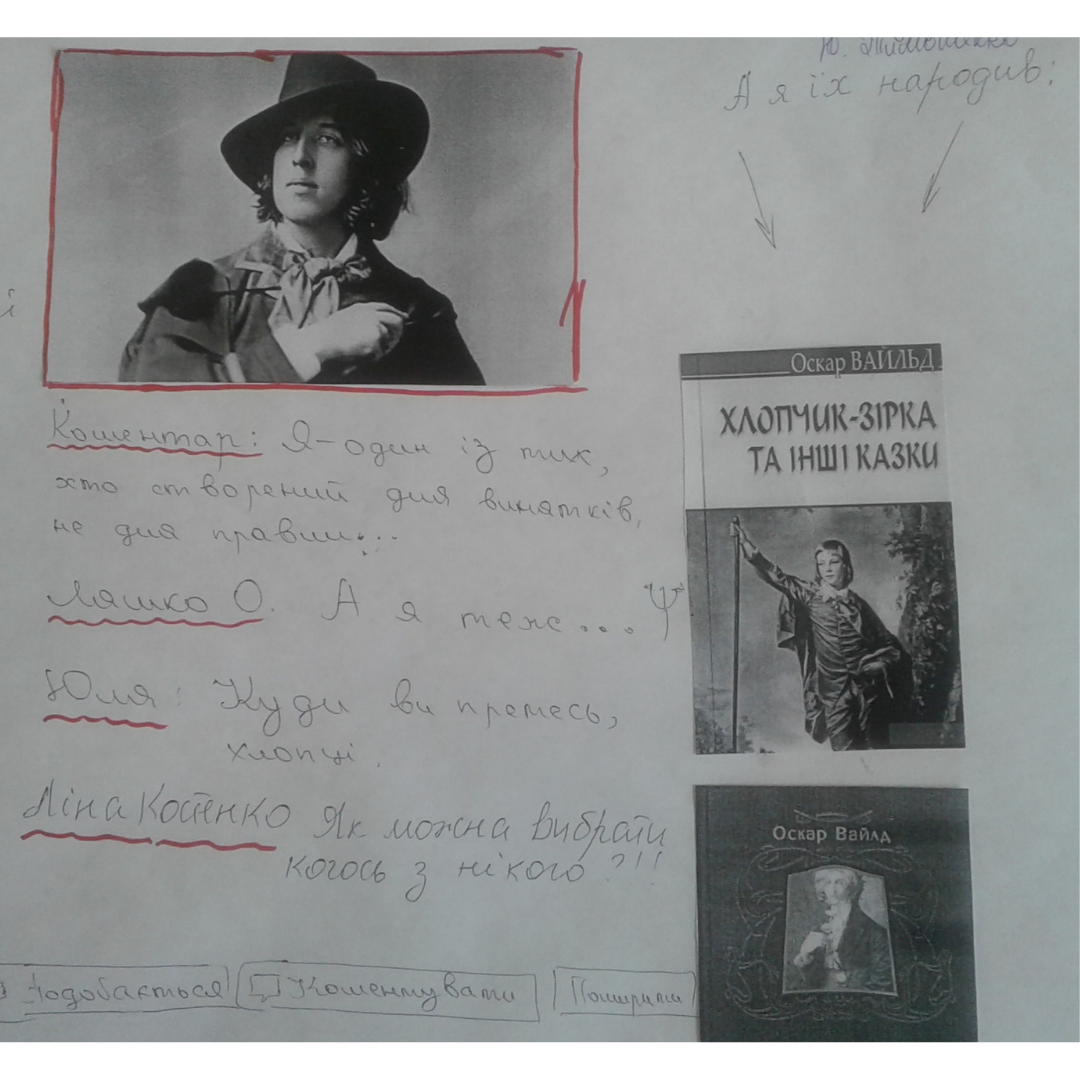 А я їх народив:
Коментар: Я – один із тих,
хто створений для винятків,
не для правил...
Ляшко О. А я теж...
Юля: Куди ви претесь,
хлопці.
Ліна Костенко Як можна вибрати
когось з нікого?!!
Подобається Коментувати Поширити
Оскар ВАЙЛЬД
ХЛОПЧИК-ЗІРКА
ТА ІНШІ КАЗКИ
Оскар Вайлд